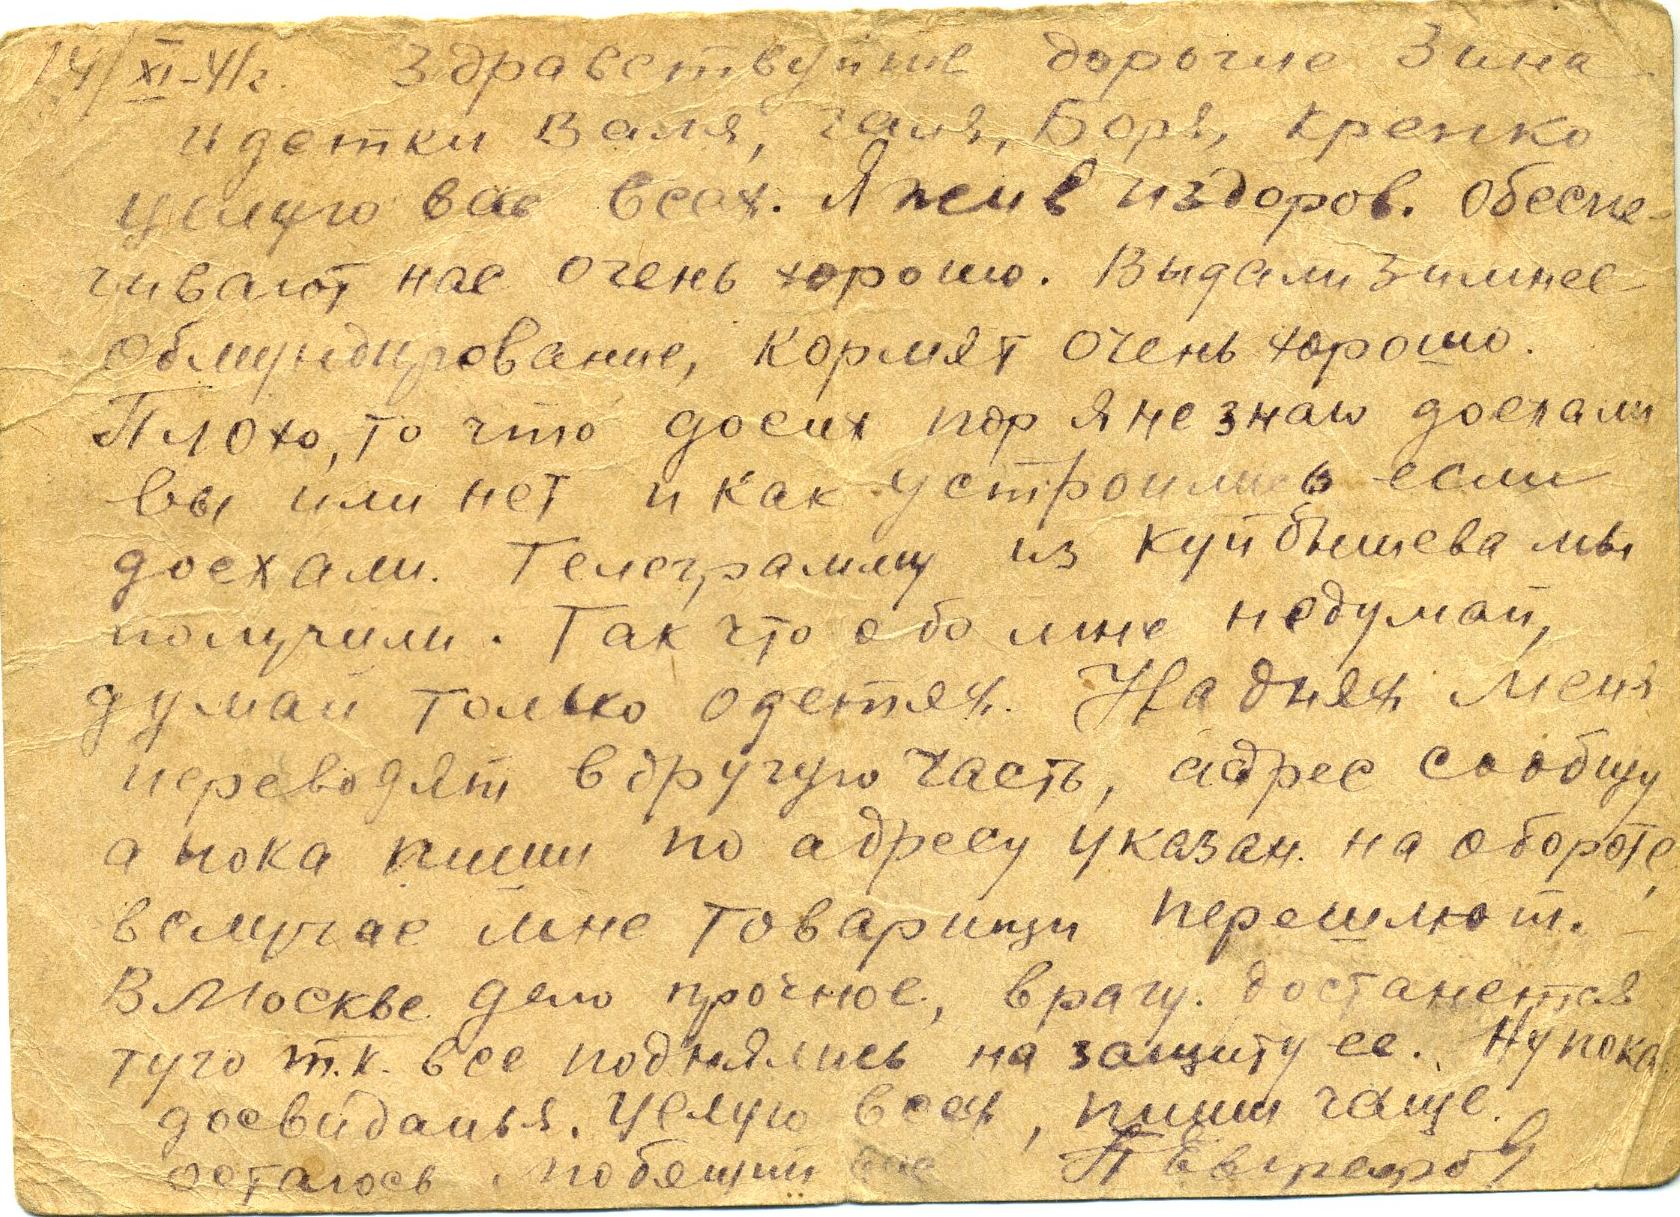 14/XI-41г. Здравствуйте дорогие Зина
и детки Валя, Галя, Боря, крепко
целую вас всех. Я жив и здоров. Обеспе-
чивают нас очень хорошо. Выдали зимнее
обмундирование, кормят очень хорошо.
Плохо, то что досих пор я не знаю доехали
вы или нет и как устроились если
доехали. Телеграмму из Куйбышева мы
получили. Так что обо мне недумай,
думай только о детях. На днях меня
переводят в другую часть, адрес сообщу
а пока пиши по адресу указан. на обороте,
в случае мне товарищи перешлют.
В Москве дело прочное, врагу достанется
туго т.к. все поднялись на защиту ее. Ну пока
досвиданья. Целую всех, пиши чаще.
остаюсь любящий вас П